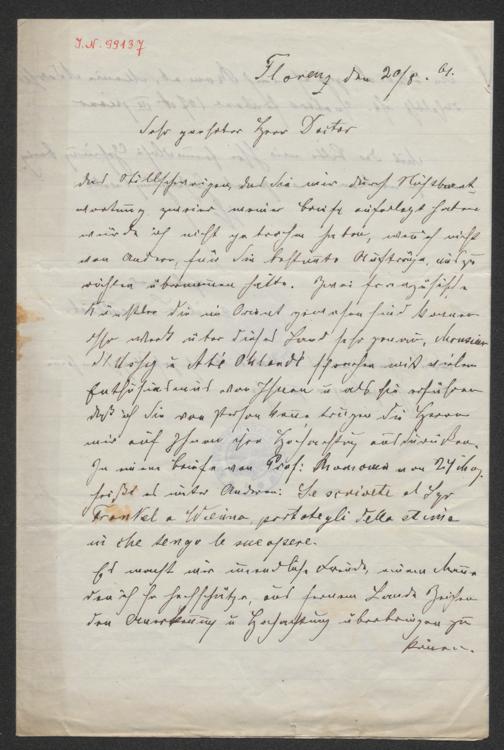 J.N. 99137
Florenz den 20/8. 61.
Sehr geehrter Herr Doctor
das Stillschweigen, das Sie mir durch Nichtbeant
wortung zweier meiner Briefe auferlegt haben
würde ich nicht gebrochen haben, wenn ich nicht
von Andern, für Sie bestimmte Aufträge, auszu
richten übernommen hätte. Zwei französische
Künstler die im Orient gewesen sind kennen
Ihr Werk über dieses Land sehr genau, Monsieur
u Abé sprechen mit vielem
Enthusiasmus von Ihnen u als sie erfuhren
daß ich Sie von Person kenne trugen die Herren
mir auf Ihnen ihre Hochachtung auszudrücken.
In einem Briefe von Prof: von 24 May
heißt es unter Anderen: Se scrivete al Sgr
Frankel a Vienna, portategli della stima
in che tengo le sue opere.
Es macht mir unendliche Freude, einem Manne
den ich so hochschätze, aus fernem Lande Zeichen
der Anerkennung u Hochachtung überbringen zu
können.